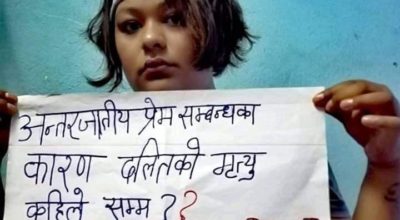 अन्तरजातीय प्रेम सम्बन्धका
कारण दलितको मृत्यु
कहिले सम्म ??